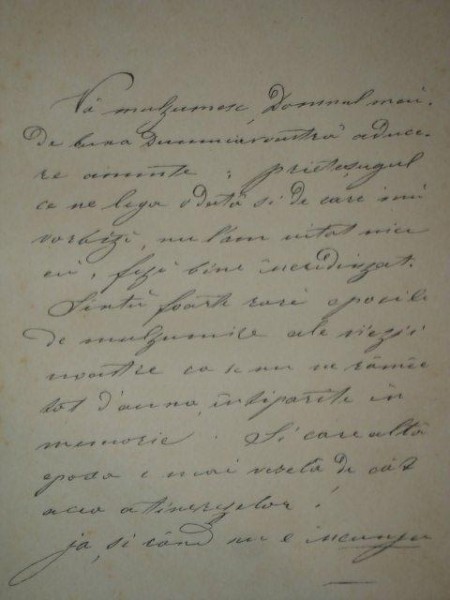 Vă mulzumesc, Domnul meu,
de buna Dumniavoastră aduce-
re aminte; prieteșugul
ce ne lega odată si de care imi
vorbizi, nu l'am uitat nici
eu, fizi bine incredinzat.
Sintŭ foarte rari epocile
de mulzumire ale viezii
noastre ca se nu ne rămîe
tot d'auna, întipărite în
memorie. Si care altă
epoca e mai veselă de cât
acea a tinerezelor!
și când nu e